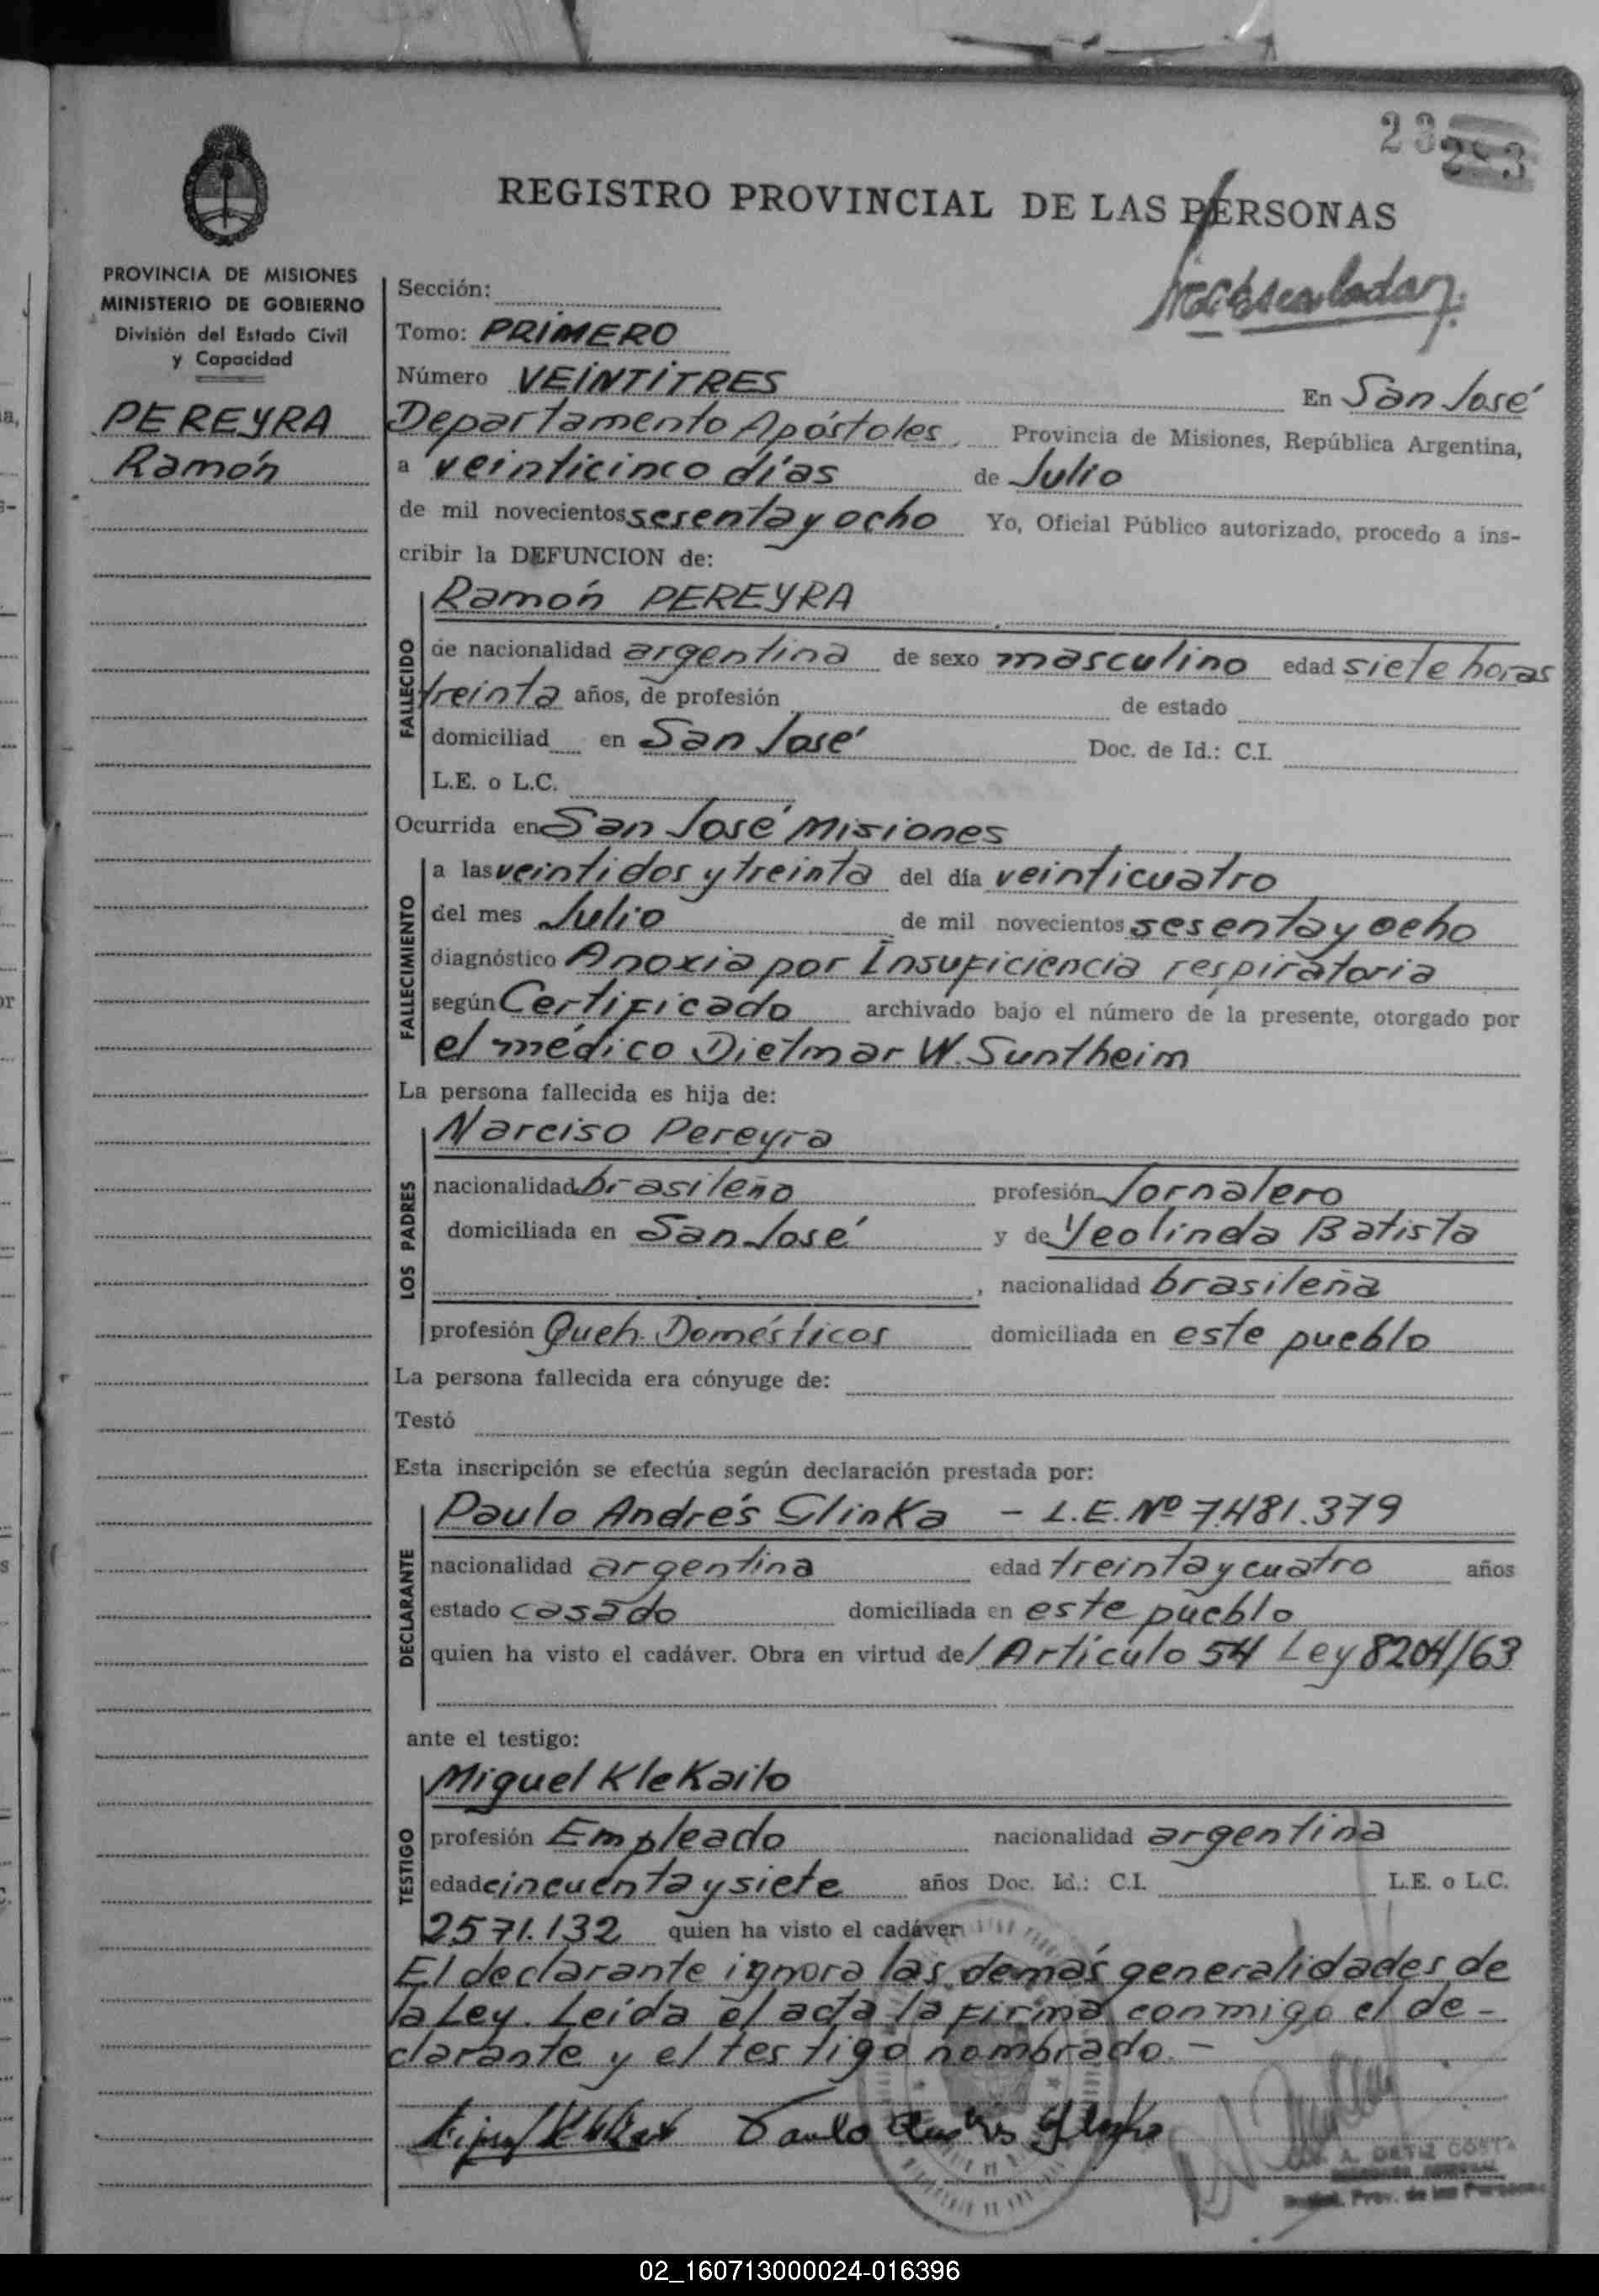 23 283
REGISTRO PROVINCIAL DE LAS PERSONAS
PROVINCIA DE MISIONES
MINISTERIO DE GOBIERNO
División del Estado Civil
y Capacidad
PEREYRA
Ramón
Sección:
Tomo: PRIMERO
Número VEINTITRES En San José
Departamento Apóstoles, Provincia de Misiones, República Argentina,
a veinticinco días de Julio
de mil novecientos sesenta y ocho Yo, Oficial Público autorizado, procedo a ins-
cribir la DEFUNCION de:
FALLECIDO
Ramón PEREYRA
de nacionalidad argentina de sexo masculino edad siete horas
treinta años, de profesión de estado
domiciliad en San José Doc. de Id.: C.I.
L.E. o L.C.
Ocurrida en San José Misiones
FALLECIMIENTO
a las veintidos y treinta del día veinticuatro
del mes Julio de mil novecientos sesenta y ocho
diagnóstico Anoxia por Insuficiencia respiratoria
según Certificado archivado bajo el número de la presente, otorgado por
el médico Dietmar W. Suntheim
La persona fallecida es hija de:
LOS PADRES
Narciso Pereyra
nacionalidad brasileño profesión Jornalero
domiciliada en San José y de Yeolinda Batista
, nacionalidad brasileña
profesión Queh. Domésticos domiciliada en este pueblo
La persona fallecida era cónyuge de:
Testó
Esta inscripción se efectúa según declaración prestada por:
DECLARANTE
Paulo Andrés Glinka - L.E. Nº 7.481.379
nacionalidad argentina edad treinta y cuatro años
estado casado domiciliada en este pueblo
quien ha visto el cadáver. Obra en virtud del Artículo 54 Ley 8204/63
ante el testigo:
TESTIGO
Miguel Klekailo
profesión Empleado nacionalidad argentina
edad cincuenta y siete años Doc. Id.: C.I. L.E. o L.C.
2.571.132 quien ha visto el cadáver
El declarante ignora las demás generalidades de
la Ley. Leída el acta la firma conmigo el de-
clarante y el testigo nombrado. -
Paulo Andrés Glinka
A. ORTIZ COSTA
Prov. de las Personas
02_160713000024-016396